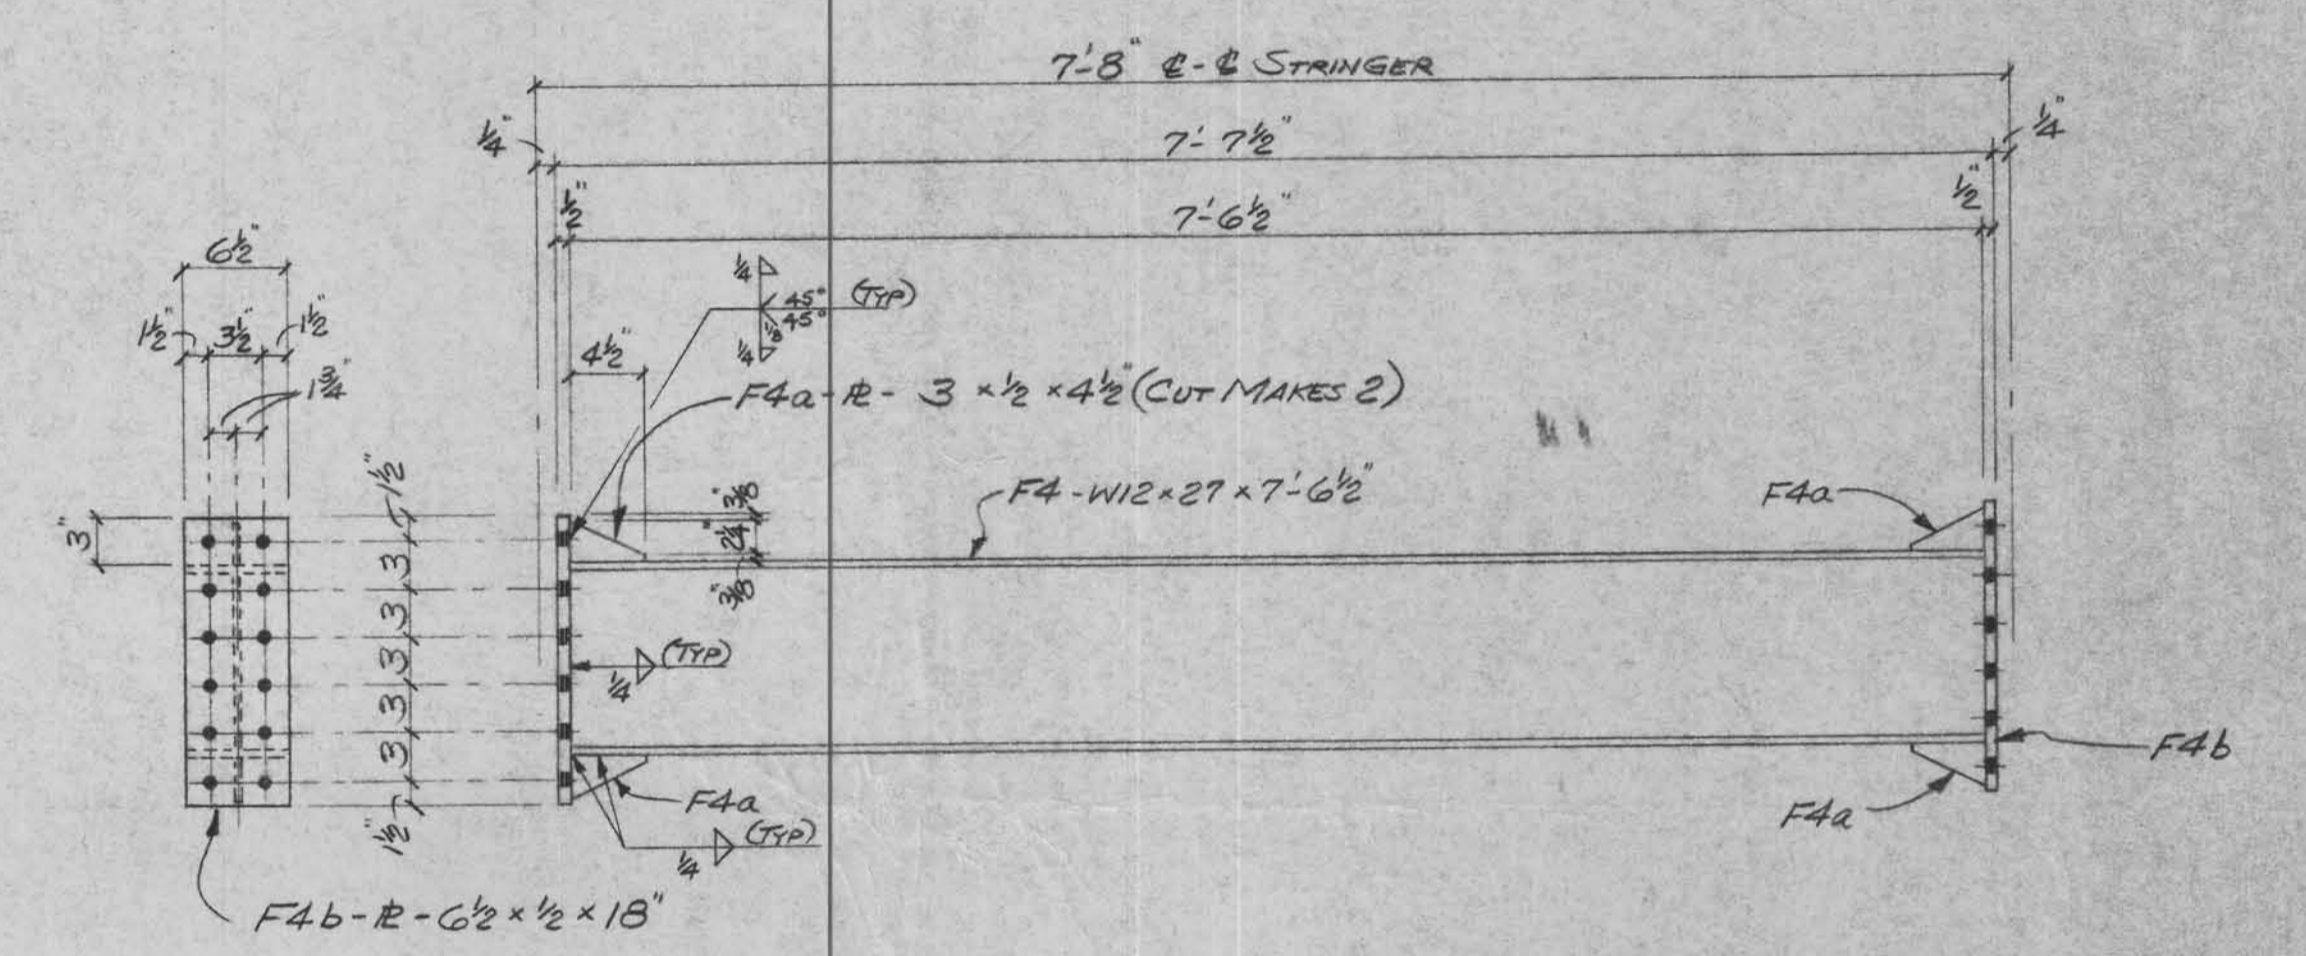 7'-8" ℄-℄ STRINGER
1/4"
7'-7 1/2"
1/4"
1/2"
7'-6 1/2"
1/2"
6 1/2"
1 1/2"
3 1/2"
1 1/2"
1 3/4"
1/4
45° (TYP)
45°
1/8
1/4
4 1/2"
F4a-℄ - 3 x 1/2 x 4 1/2" (CUT MAKES 2)
F4-W12x27x7'-6 1/2"
F4a
3"
1 1/2"
3
3
3
3
3
1 1/2"
3/8"
2 1/4"
3/8"
(TYP)
1/4
F4a
(TYP)
1/4
F4b
F4a
F4b-℄-6 1/2 x 1/2 x 18"